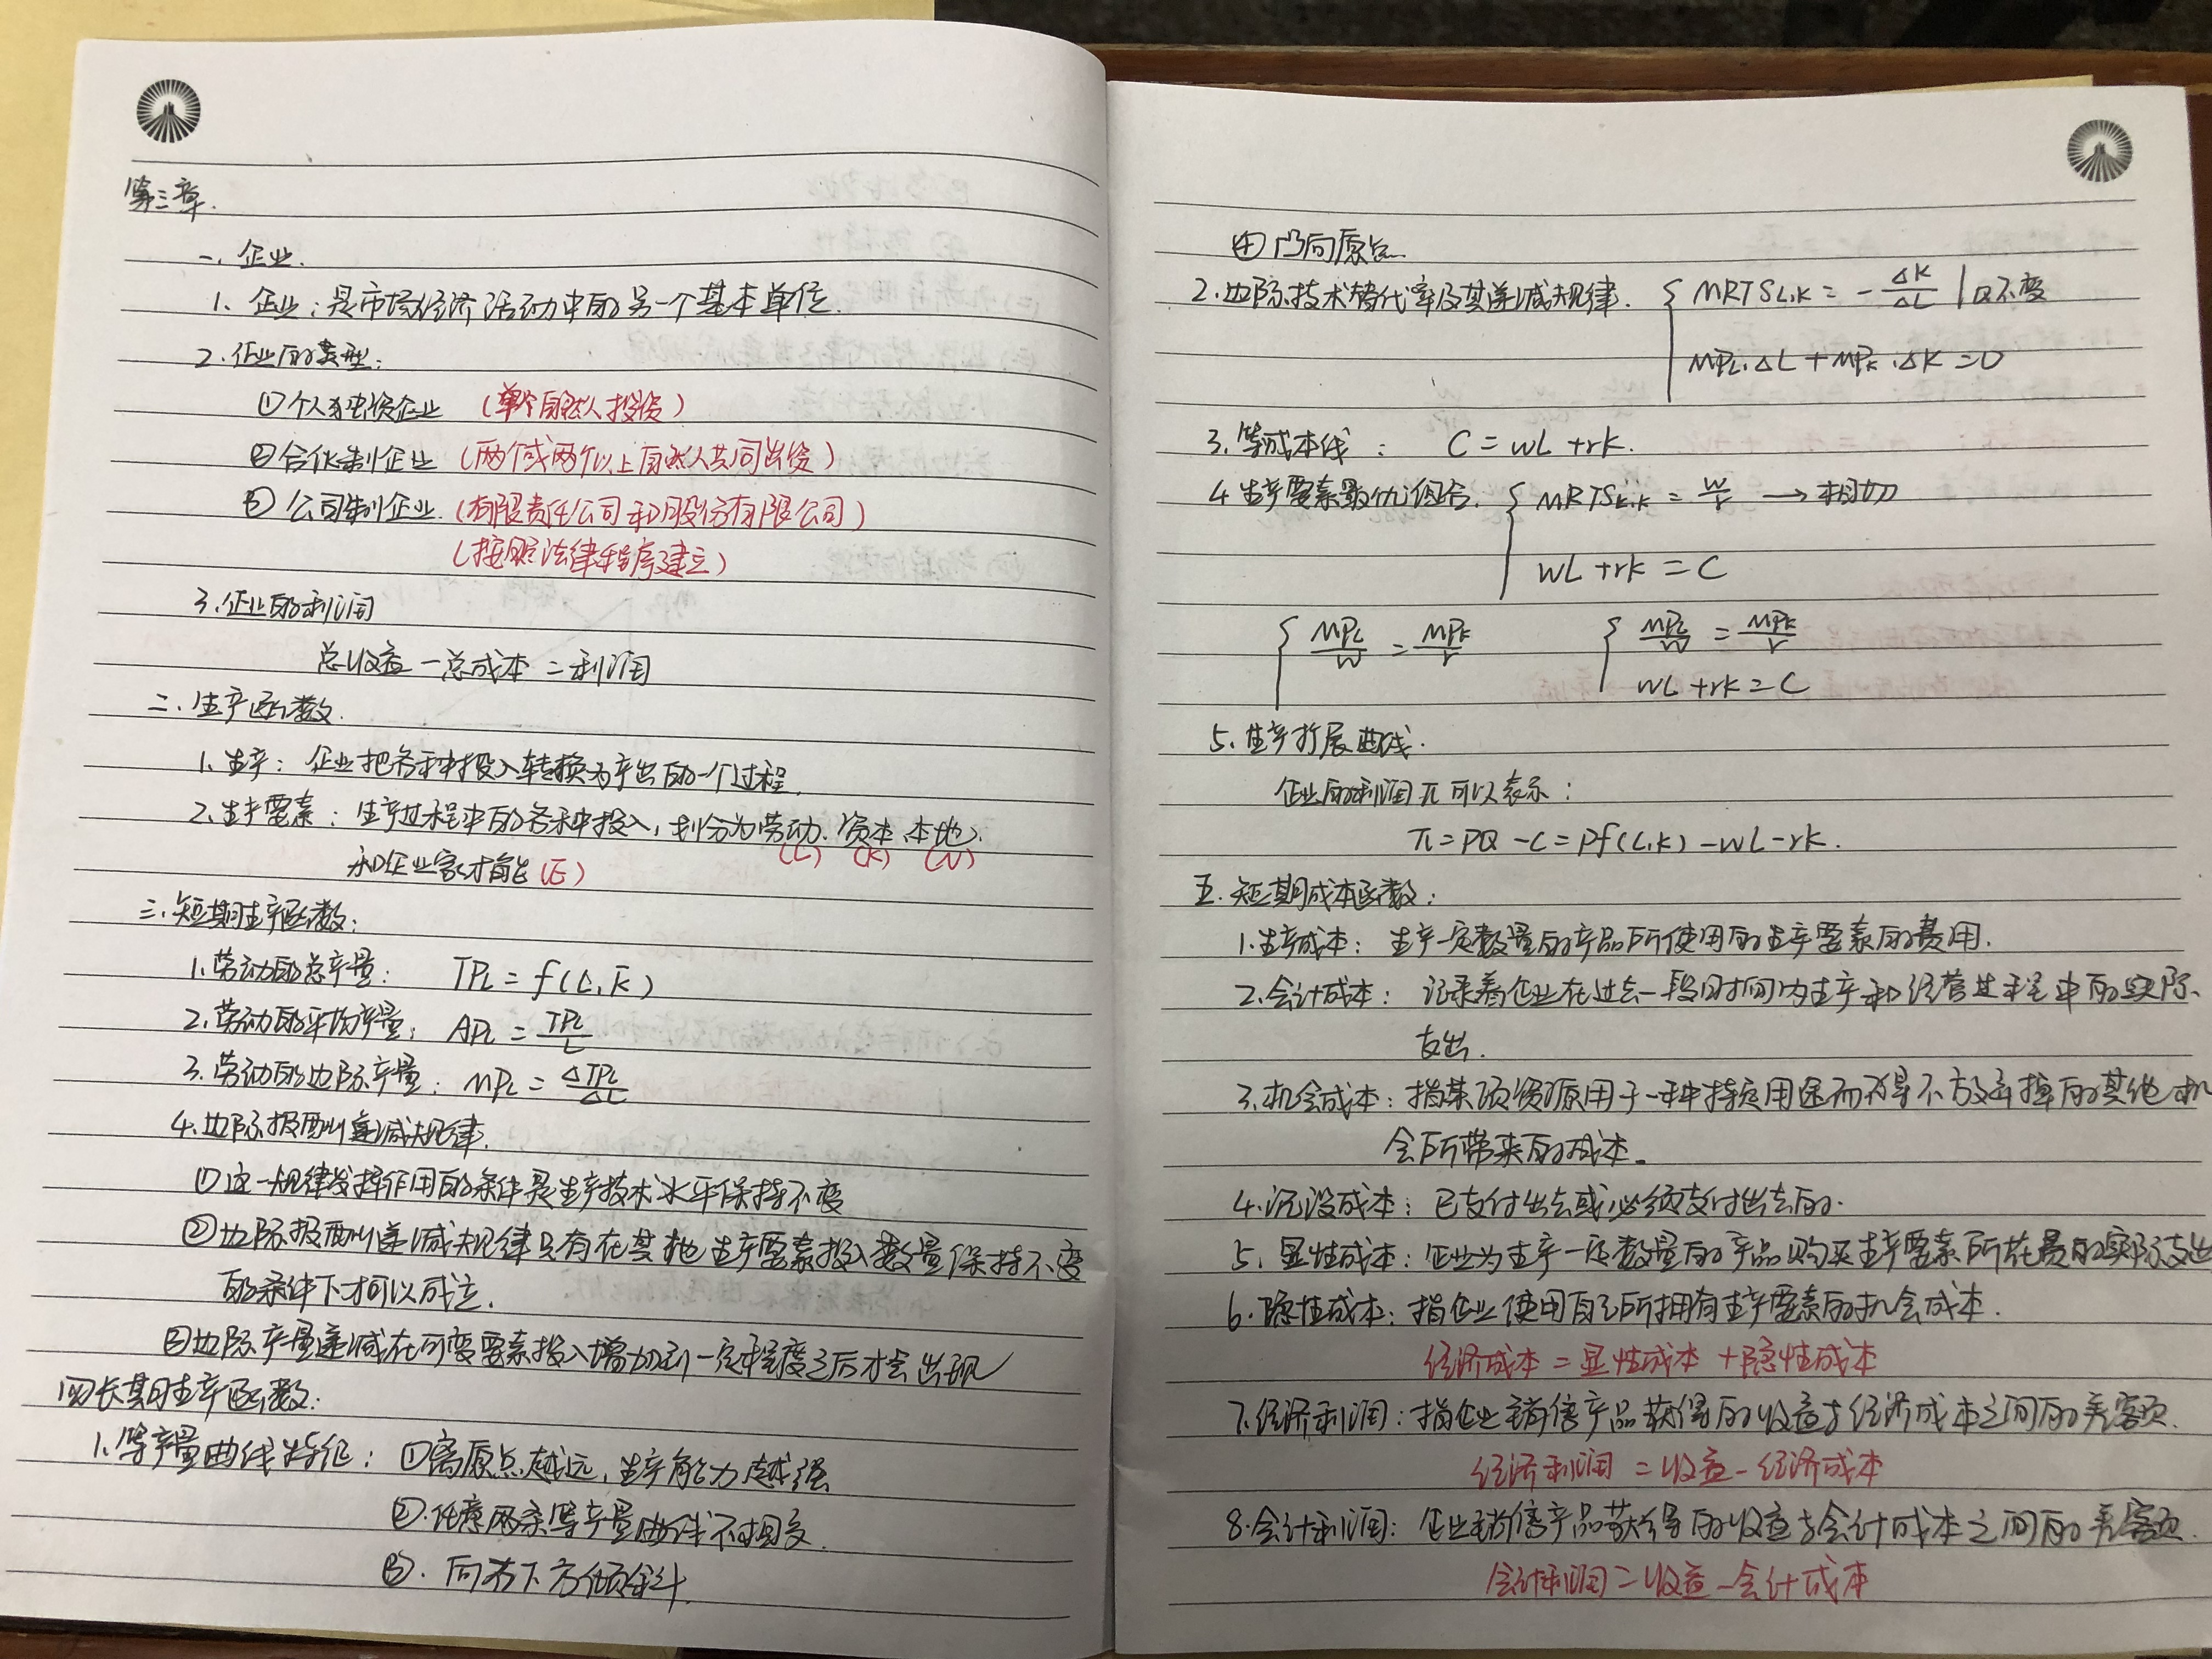 第三章.
一、企业.
1、企业：是市场经济活动中的另一个基本单位.
2.企业的类型：
①个人独资企业 （单个自然人投资）
②合伙制企业（两个或两个以上自然人共同出资）
③公司制企业.（有限责任公司和股份有限公司）
（按照法律程序建立）
3.企业的利润
总收益－总成本＝利润
二、生产函数.
1.生产：企业把各种投入转换为产出的一个过程.
2.生产要素：生产过程中的各种投入，划分为劳动.资本.本地.
(L) (K) (N)
和企业家才能(E)
三.短期生产函数：
1.劳动的总产量： TPL = f(L,K̄)
2.劳动的平均产量： APL = TPL/L
3.劳动的边际产量： MPL = ΔTPL/ΔL
4.边际报酬递减规律.
①这一规律发挥作用的条件是生产技术水平保持不变
②边际报酬递减规律只有在其他生产要素投入数量保持不变
的条件下才可以成立.
③边际产量递减在可变要素投入增加到一定程度之后才会出现
四长期生产函数：
1.等产量曲线特征：①离原点越远，生产能力越强
②.任意两条等产量曲线不相交.
③.向右下方倾斜.
④凸向原点.
2.边际技术替代率及其递减规律. { MRTSL,K = -ΔK/ΔL | Q不变
MPL·ΔL + MPK·ΔK = 0
3.等成本线： C = wL + rK.
4生产要素最优组合. { MRTSL,K = w/r → 相切
wL + rK = C
{ MPL/w = MPK/r { MPL/w = MPK/r
wL + rK = C
5.生产扩展曲线.
企业的利润π可以表示：
π = PQ - C = Pf(L,K) - wL - rK.
五.短期成本函数：
1.生产成本：生产一定数量的产品所使用的生产要素的费用.
2.会计成本：记录着企业在过去一段时间内生产和经营过程中的实际
支出.
3.机会成本：指某项资源用于一种特定用途而不得不放弃掉的其他机
会所带来的成本。
4.沉没成本：已支付出去或必须支付出去的.
5、显性成本：企业为生产一定数量的产品购买生产要素所花费的实际支出
6.隐性成本：指企业使用自己所拥有生产要素的机会成本.
经济成本＝显性成本＋隐性成本
7.经济利润：指企业销售产品获得的收益与经济成本之间的差额.
经济利润＝收益－经济成本
8.会计利润：企业销售产品获得的收益与会计成本之间的差额.
会计利润＝收益－会计成本